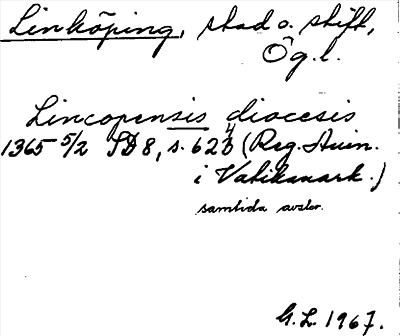 Linköping, stad o. stift,
Ög.l.
Lincopensis diocesis
1365 5/2 SD 8, s. 623 (Reg. Avin.
i Vatikanark.)
samtida avskr.
G.L. 1967.